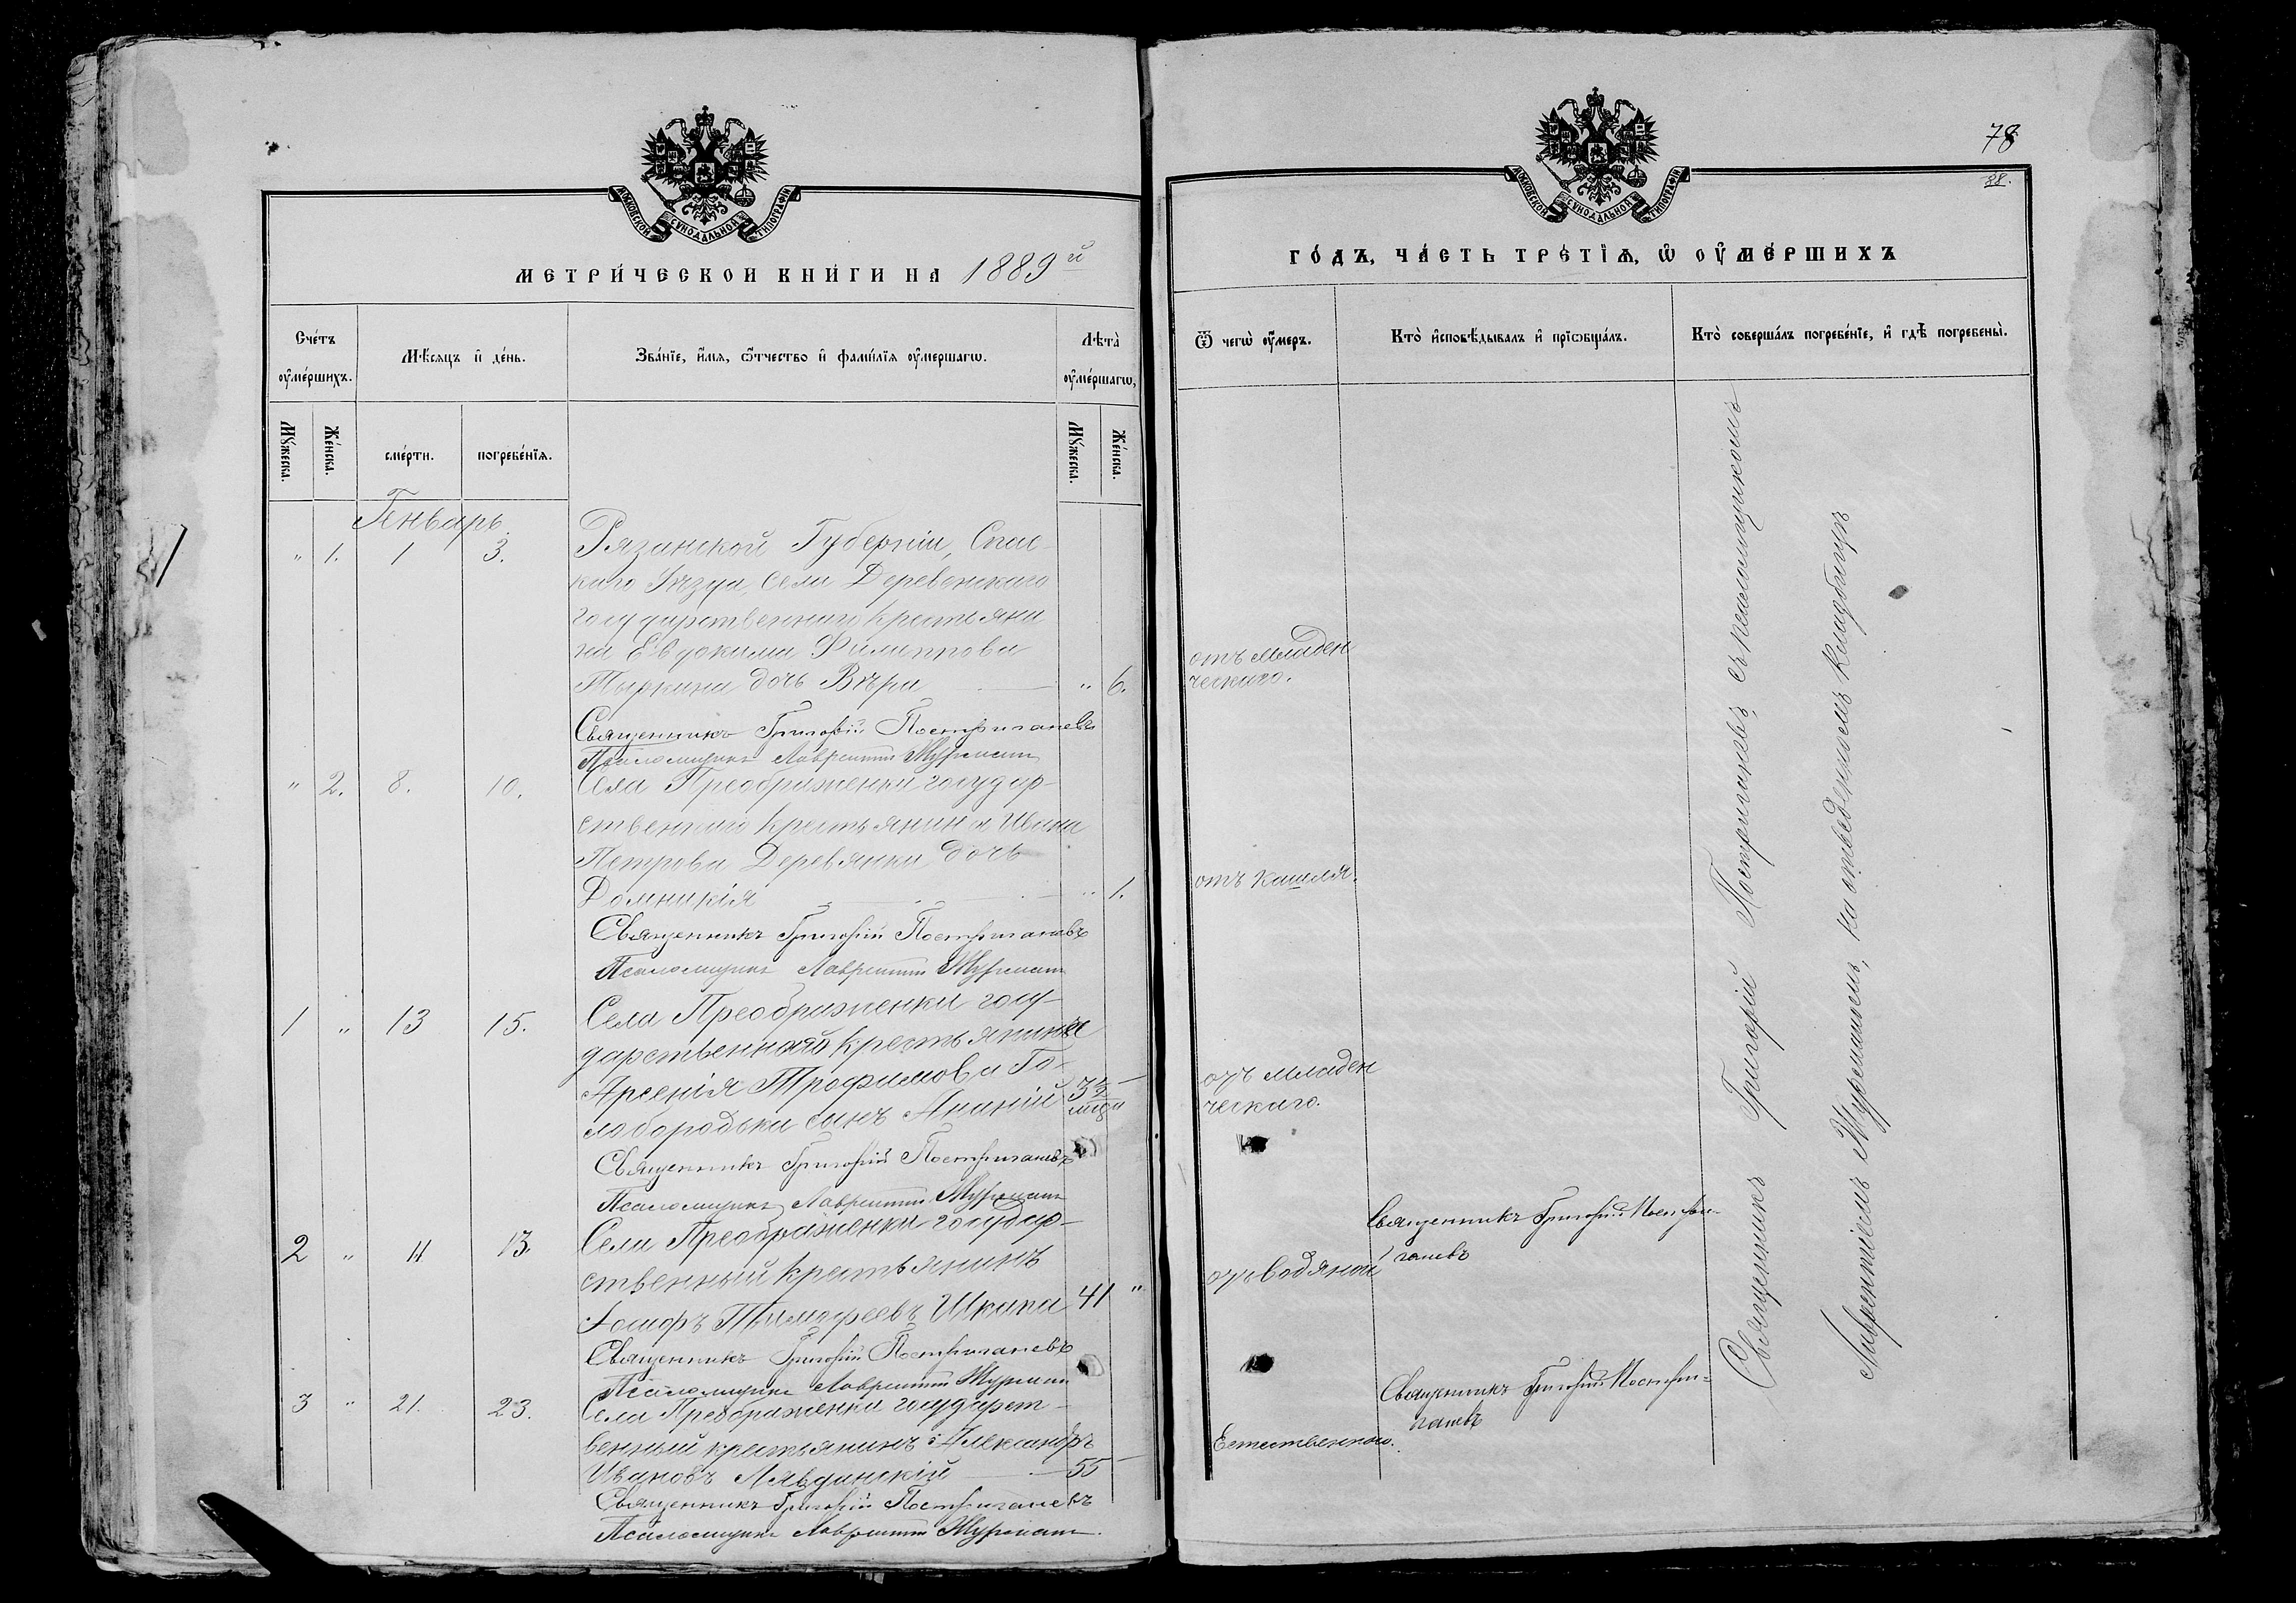 МОСКОВСКОЙ СѴНОДАЛЬНОЙ ТИПОГРАФІИ
МЕТРИ́ЧЕСКОЙ КНИ́ГИ НА 1889й
Счётъ ᲂу҆ме́ршихъ.
Мѣ́сяцъ и҆ де́нь.
Зва́нїе, и҆́мя, ѻ҆́тчество и҆ фами́лїя ᲂу҆ме́ршагѡ.
Лѣта̀ ᲂу҆ме́ршагѡ,
Мꙋ́жеска.
Же́нска.
сме́рти.
погребе́нїя.
Мꙋ́жеска.
Же́нска.
Генварь.
" 1. 1 3. Рязанской Губерніи, Спас-
каго Уѣзда, Села Деревенскаго
государственнаго крестьяни
на Евдокима Филиппова
Тыркина дочь Вѣра " 6.
Священникъ Григорій Постригачевъ
Псаломщикъ Лаврентій
" 2. 8. 10. Села Преображенки государ-
ственнаго крестьянина Ивана
Петрова Деревянки дочь
Домникія " 1.
Священникъ Григорій Постригачевъ
Псаломщикъ Лаврентій
1 " 13 15. Села Преображенки госу-
дарственнаго крестьянина
Арсенія Трофимова Го-
лобородьки сынъ Ананій 3½ мцѣ
Священникъ Григорій Постригачевъ
Псаломщикъ Лаврентій
2 " 11 13. Села Преображенки государ-
ственный крестьянинъ
Іосифъ Тимофеевъ Шкапа 41 "
Священникъ Григорій Постригачевъ
Псаломщикъ Лаврентій
3 " 21. 23. Села Преображенки государст-
венный крестьянинъ Александръ
Ивановъ 55
Священникъ Григорій Постригачевъ
Псаломщикъ Лаврентій
78
88.
МОСКОВСКОЙ СѴНОДАЛЬНОЙ ТИПОГРАФІИ
ГО́ДЪ, ЧА́СТЬ ТРЕ́ТЇѦ, Ѡ҆ ОУ҆МЕ́РШИХЪ
Ѿ чегѡ̀ ᲂу҆́меръ.
Кто̀ и҆сповѣ́дывалъ и҆ прїѡбща́лъ.
Кто̀ соверша́лъ погребе́нїе, и҆ гдѣ̀ погребены̀.
отъ младен
ческаго.
отъ кашля.
отъ младен
ческаго.
отъ водяной
Священникъ Григорій Постри-
гачевъ
Естественною.
Священникъ Григорій Постри-
гачевъ
Священникъ Григорій Постригачевъ, съ псаломщикомъ
Лаврентіемъ на отведенномъ кладбищѣ